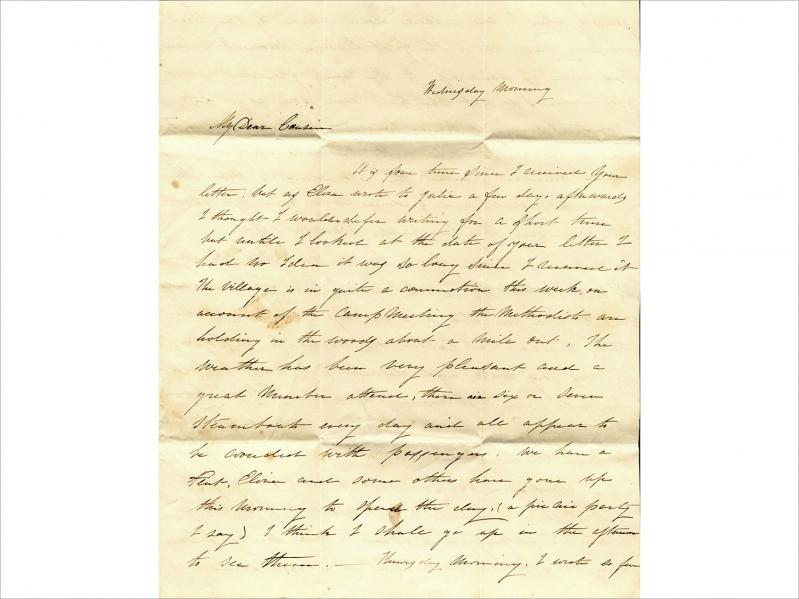 Wednesday Morning
My Dear Cousin
It is some time since I received your
letter. but as Eliza wrote to Julia a few days afterwards
I thought I would defer writing for a short time
but untile I looked at the date of your letter I
had no Idea it was so long since I received it
The Village is in quite a commotion this week on
account of the Camp Meeting the Methodists are
holding in the woods about a mile out. The
weather has been very pleasant and a
great Number attend, there is six or seven
Steamboats every day and all appear to
be crouded with passengers. We have a
Tent, Eliza and some others have gone up
this Morning to spend the day, (a pic nic party
I say) I think I shall go up in the afternoon
to see them. — Thursday Morning. I wrote so far